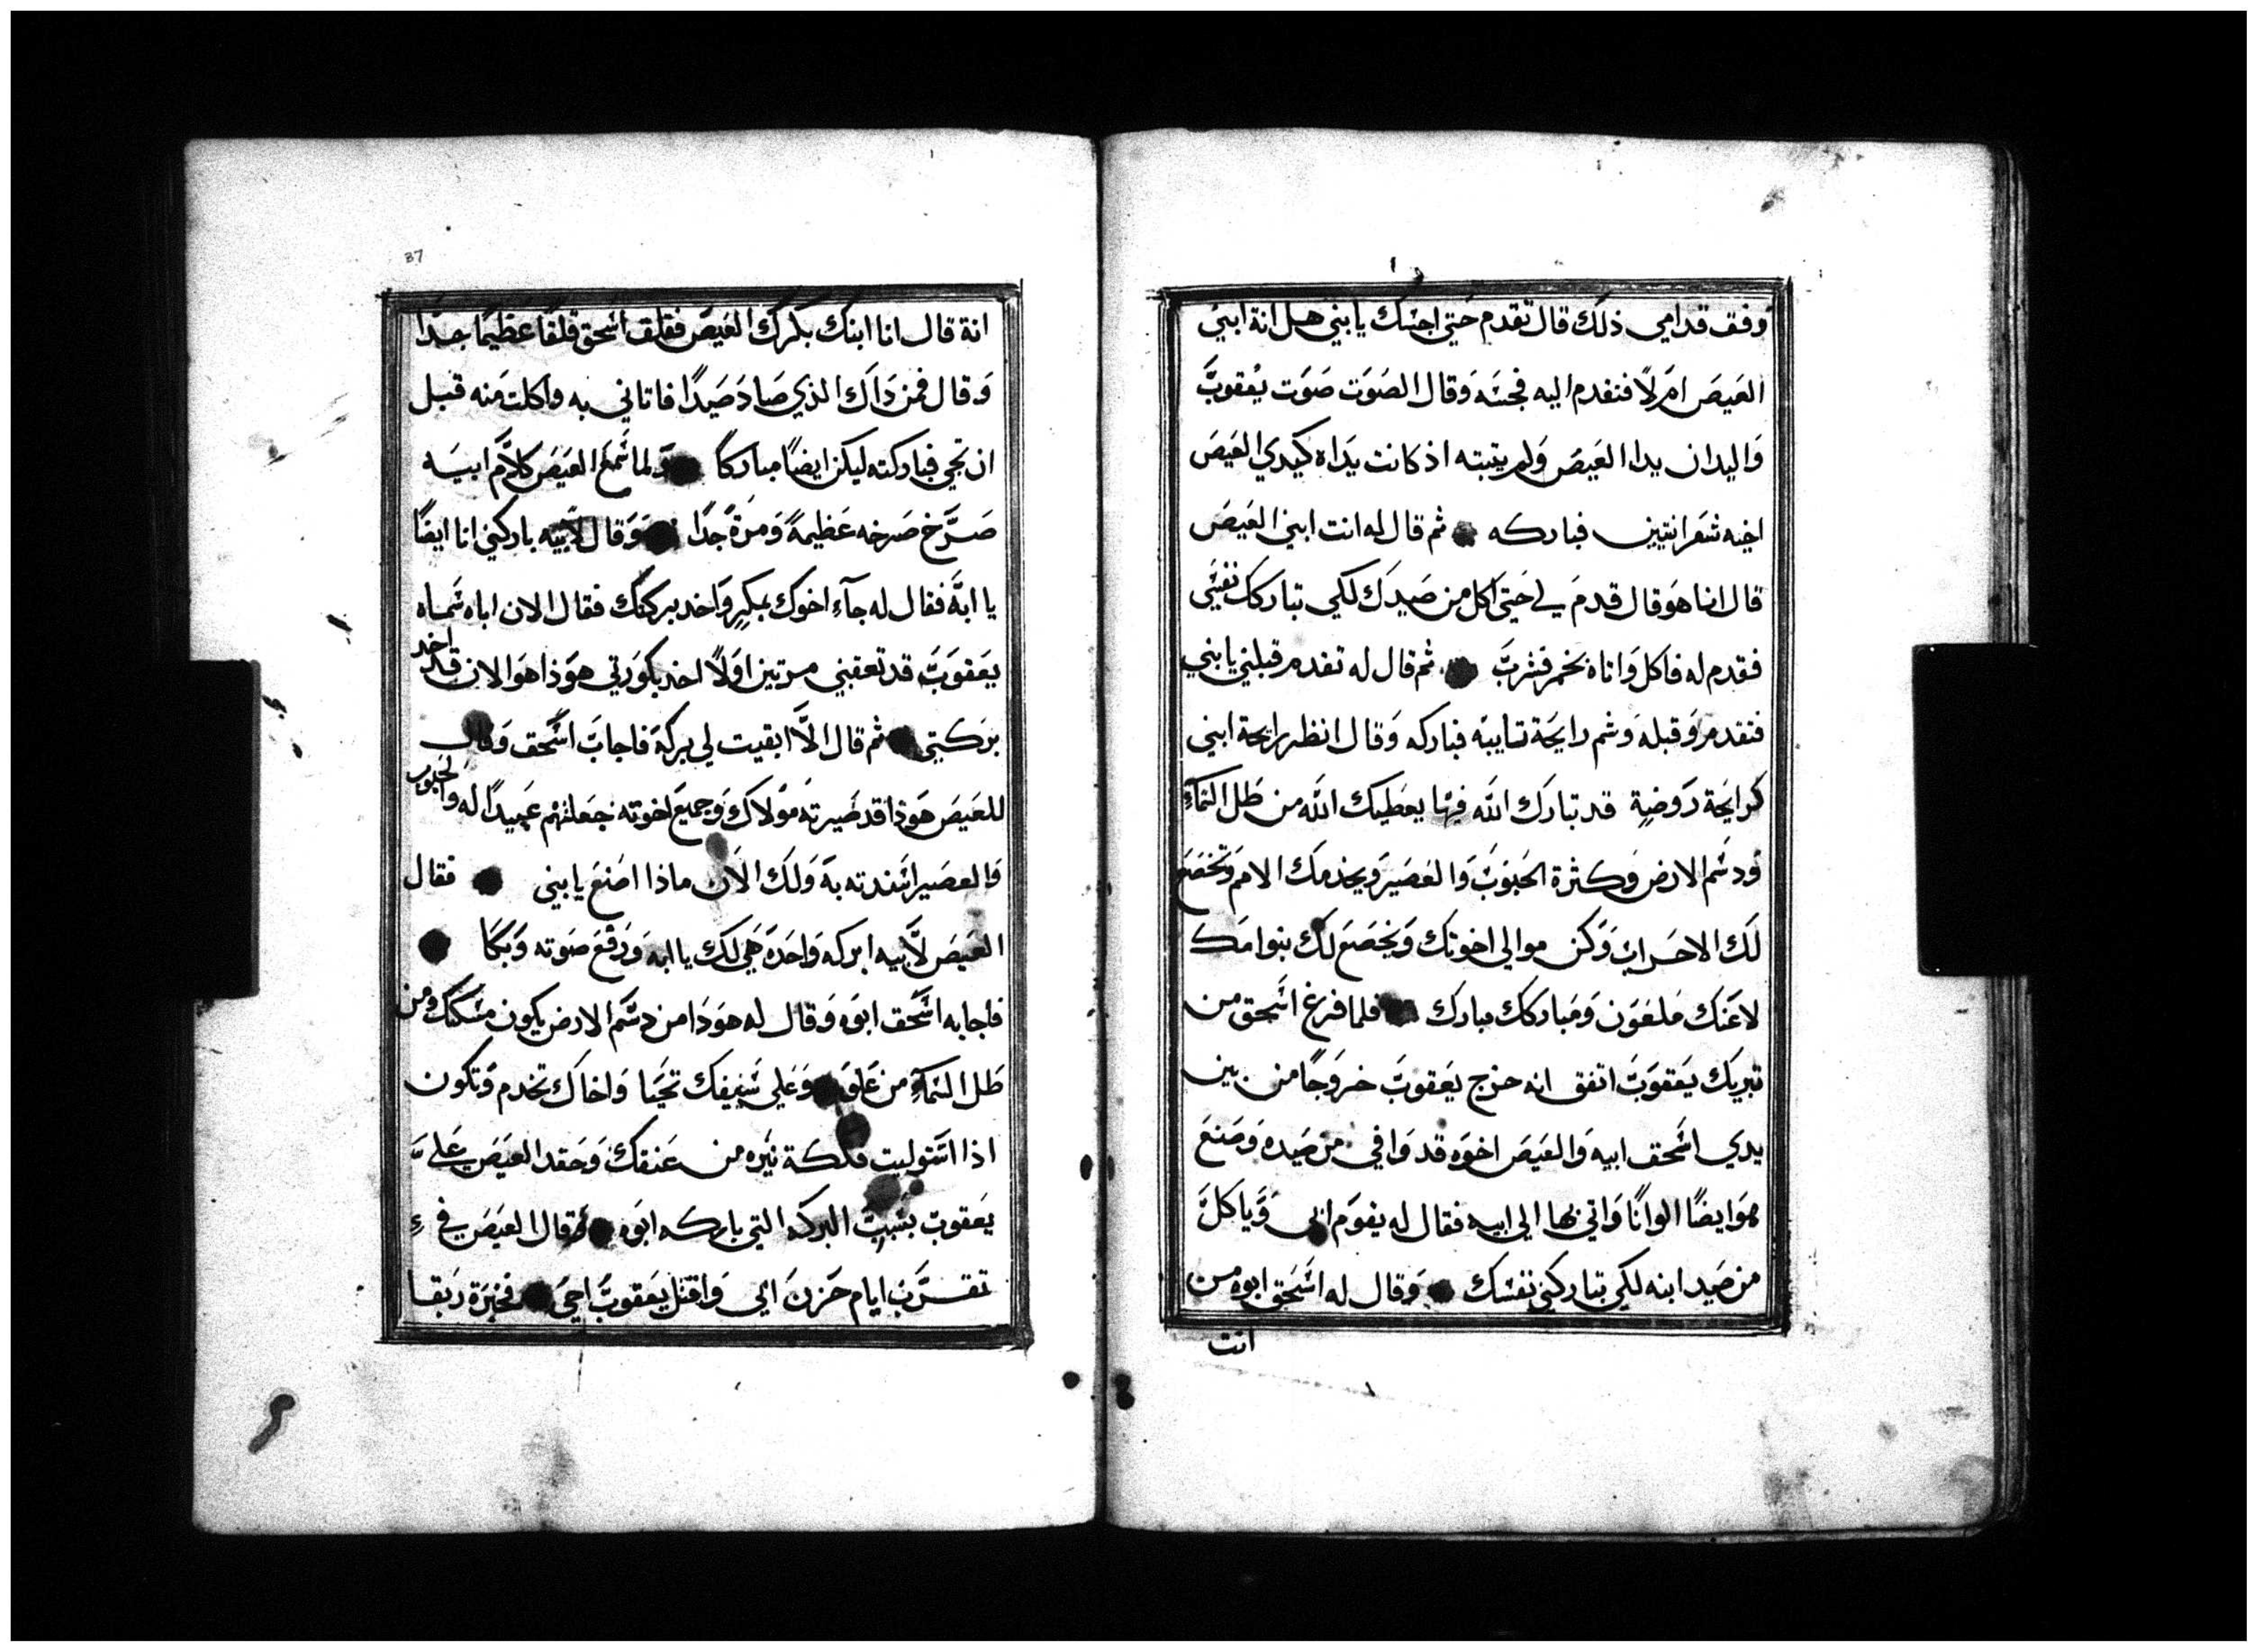 وفف قدامي ذلك قال تقدم حتى اجسك يابني هل انة ابني
العيص امرلا فتقدم اليه فجسه وقال الصوت صوت يعقوب
واليدان يدا العيص ولم يتبته اذ كانت يداه كيدي العيص
اخيه شعرانتين فباركه ثم قال له انت ابني العيص
قال انا هو قال قدم لي حتى اكل من صيدك لكي تباركك نفسي
فقدم له فاكل واتاه بخمر فشرب ثم قال له تقدم قبلني يابني
فتقدم وقبله وشم رايحة تيابه فباركه وقال انظر رايحة ابني
كرايحة روضة قد تبارك الله فيها يعطيك الله من طل السماء
ودسم الارض وكثرة الحبوب والعصير ويخدمك الامم وتخضع
لك الاحزاب وكن موالي اخوتك ويخضع لك بنوا مك
لاعنك ملعون ومباركك مبارك فلما فرغ اسحق من
تبريك يعقوب اتفق انه خرج يعقوب خروجا من بين
يدي اسحق ابيه والعيص اخوه قد وافي من صيده وصنع
هو ايضا الوانا واتي بها الي ابيه فقال له يقوم ابي وياكل
من صيد ابنه لكي تباركني نفسك وقال له اسحق ابوه من
انت
37
انة قال انا ابنك بكرك العيص فقلق اسحق قلقا عظيما جدا
وقال فمن داك الذي صاد صيدا فاتاني به واكلت منه قبل
ان تجي فباركته ليكن ايضا مباركا ولما سمع العيص كلام ابيه
صرخ صرخه عظيمة ومرة جدا وقال لابيه باركني انا ايضا
يا ابة فقال له جاء اخوك بمكر واخد بركتك فقال الان اباه سماه
يعقوب قد تعقبني مرتين اولا اخد بكورتي هوذا هو الان قد اخد
بركتي ثم قال الا ابقيت لي بركة فاجاب اسحق وقال
للعيص هوذا قد صيرته مولاك وجميع اخوته جعلتهم عبيدا له والحبوب
والعصير اسندته به ولك الان ماذا اصنع يابني فقال
العيص لابيه ابركه واحدة هي لك يا ابه ورفع صوته وبكا
فاجابه اسحق ابوه وقال له هودا من دسم الارض يكون مسكنك ومن
طل السماء من علو وعلي سيفك تحيا واخاك تخدم وتكون
اذا استوليت فككة نيره من عنقك وحقد العيص علي
يعقوب بسبب البركه التي باركه ابوه وقال العيص في
تقرب ايام حزن ابي واقتل يعقوب اخي فخبرة ربقا